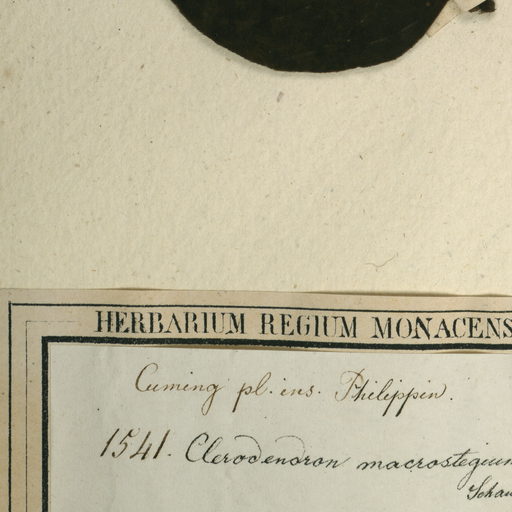 HERBARIUM REGIUM MONACENS
Cuming pl. ins. Philippin.
1541. Clerodendron macrostegium
Schau